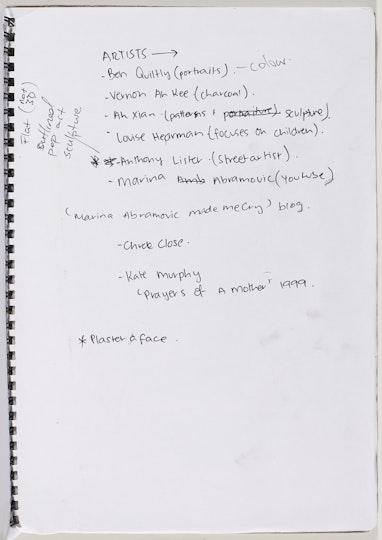 ARTISTS →
- Ben Quilty (portraits). - colour.
- Vernon Ah Kee (charcoal).
- Ah Xian (patterns + portraiture sculpture)
- Louise Hearman (focuses on children).
* * - Anthony Lister. (street artist).
- Marina Abramovic (youtube)
('Marina Abramovic made me Cry') blog.
- Chuck Close.
- Kate Murphy
'Prayers of A mother' 1999.
* Plaster a face.
Flat (not 3D)
Outlined
pop art
sculpture